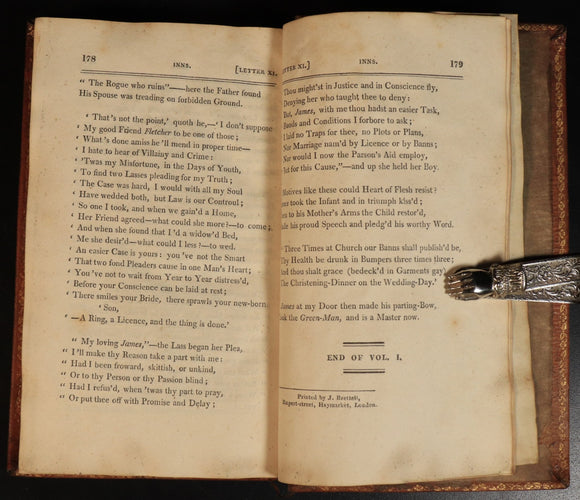 178
INNS.
[LETTER XI.
“ The Rogue who ruins”——here the Father found
His Spouse was treading on forbidden Ground.
‘ That's not the point,’ quoth he,—‘ I don't suppose
‘ My good Friend Fletcher to be one of those ;
‘ What's done amiss he 'll mend in proper time—
‘ I hate to hear of Villainy and Crime :
‘ 'Twas my Misfortune, in the Days of Youth,
‘ To find two Lasses pleading for my Truth ;
‘ The Case was hard, I would with all my Soul
‘ Have wedded both, but Law is our Controul ;
‘ So one I took, and when we gain'd a Home,
‘ Her Friend agreed—what could she more?—to come ;
‘ And when she found that I 'd a widow'd Bed,
‘ Me she desir'd—what could I less?—to wed.
‘ An easier Case is yours : you 've not the Smart
‘ That two fond Pleaders cause in one Man's Heart ;
‘ You 've not to wait from Year to Year distress'd,
‘ Before your Conscience can be laid at rest ;
‘ There smiles your Bride, there sprawls your new-born
‘ Son,
‘ —A Ring, a Licence, and the thing is done.’
“ My loving James,”—the Lass began her Plea,
“ I 'll make thy Reason take a part with me :
“ Had I been froward, skittish, or unkind,
“ Or to thy Person or thy Passion blind ;
“ Had I refus'd, when 'twas thy part to pray,
“ Or put thee off with Promise and Delay ;
LETTER XI.]
INNS.
179
Thou might'st in Justice and in Conscience fly,
Denying her who taught thee to deny :
But, James, with me thou hadst an easier Task,
Bonds and Conditions I forbore to ask ;
I laid no Traps for thee, no Plots or Plans,
Nor Marriage nam'd by Licence or by Banns ;
Nor would I now the Parson's Aid employ,
But for this Cause,”—and up she held her Boy.
Motives like these could Heart of Flesh resist ?
took the Infant and in triumph kiss'd ;
to his Mother's Arms the Child restor'd,
his proud Speech and pledg'd his worthy Word.
Three Times at Church our Banns shall publish'd be,
Thy Health be drunk in Bumpers three times three ;
And thou shalt grace (bedeck'd in Garments gay)
The Christening-Dinner on the Wedding-Day.’
James at my Door then made his parting-Bow,
Took the Green-Man, and is a Master now.
END OF VOL. I.
Printed by J. Brettell,
Rupert-street, Haymarket, London.